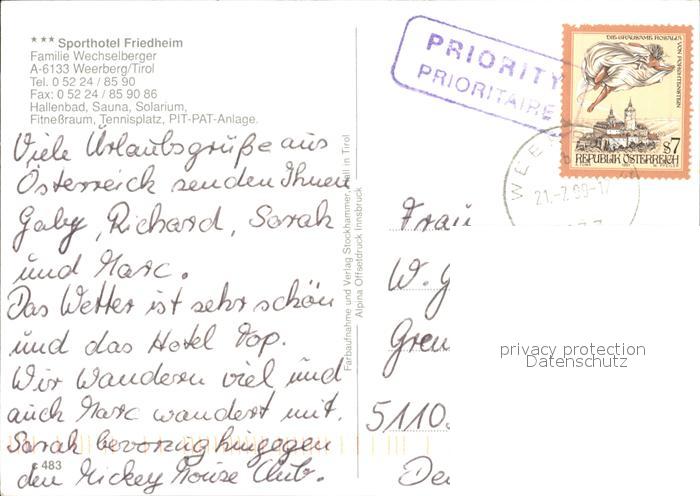 *** Sporthotel Friedheim
Familie Wechselberger
A-6133 Weerberg/Tirol
Tel. 0 52 24 / 85 90
Fax: 0 52 24 / 85 90 86
Hallenbad, Sauna, Solarium,
Fitneßraum, Tennisplatz, PIT-PAT-Anlage.
Viele Urlaubsgrüße aus
Österreich senden Ihnen
Gaby, Richard, Sarah
und Marc.
Das Wetter ist sehr schön
und das Hotel Top.
Wir wandern viel und
auch Marc wandert mit.
Sarah bevorzug hingegen
den Mickey Mouse Club.
483
Farbaufnahme und Verlag Stockhammer, Hall in Tirol
Alpina Offsetdruck Innsbruck
PRIORITY
PRIORITAIRE
DIE GRAUSAME ROSALIA
VON FORCHTENSTEIN
S7
REPUBLIK ÖSTERREICH
WEE
21.-7.99-17
Frau
W. G
Gren
5110
De
privacy protection
Datenschutz